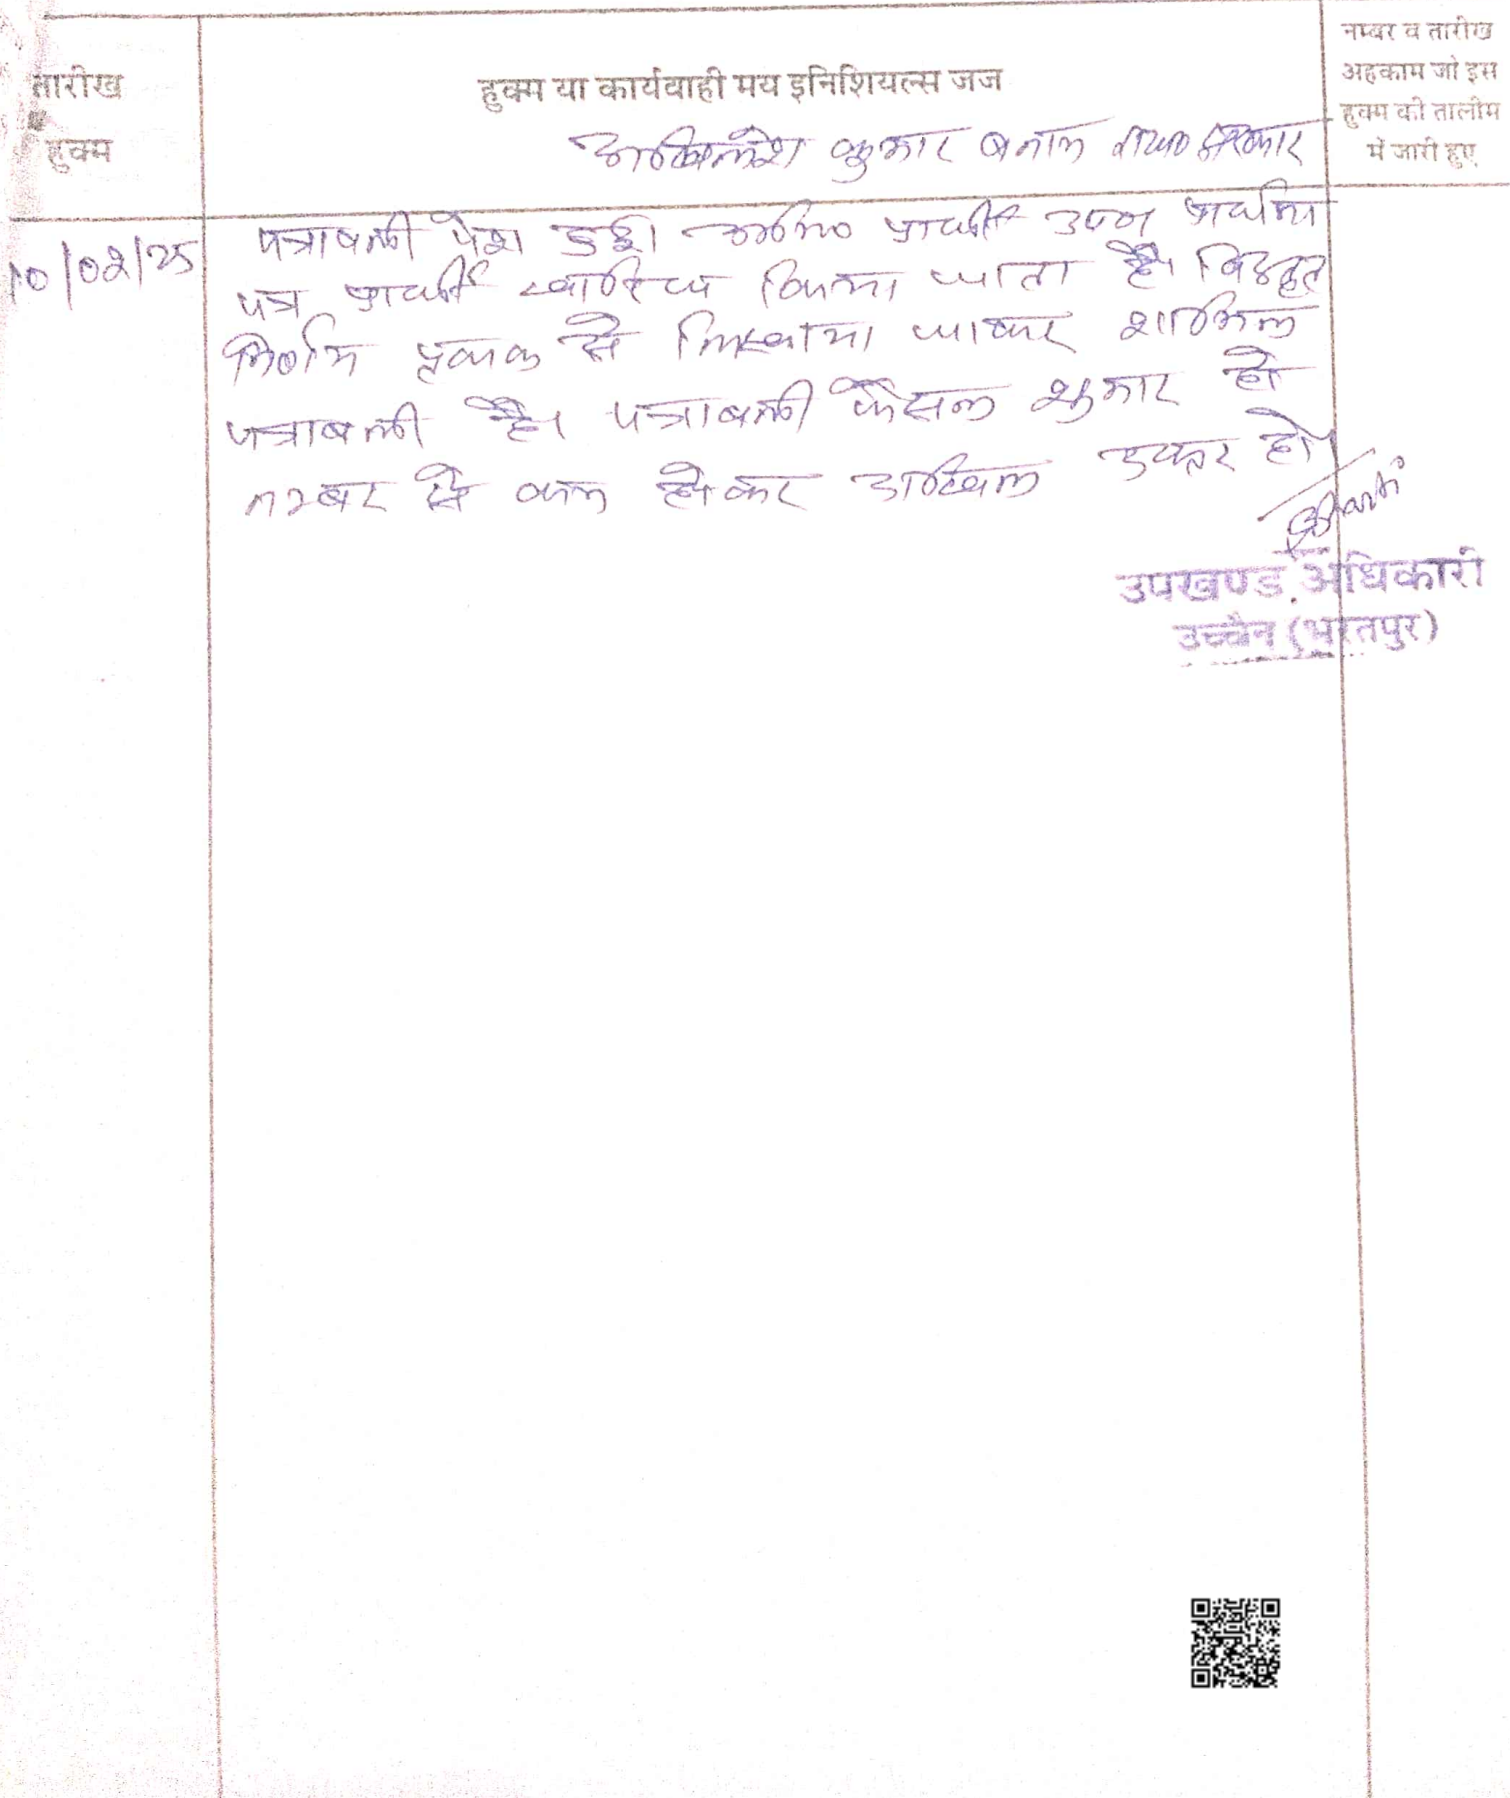 तारीख
हुक्म
हुक्म या कार्यवाही मय इनिशियल्स जज
नम्बर व तारीख
अहकाम जो इस
हुक्म की तालीम
में जारी हुए
अखिलेश कुमार बनाम राज० सरकार
पत्रावली पेश हुई। अभि० प्रार्थी उप० प्रार्थना
पत्र प्रार्थी खारिज किया जाता है। विस्तृत
निर्णय पृथक से लिखाया जाकर शामिल
पत्रावली है। पत्रावली फैसल शुमार हो
नम्बर से कम होकर दाखिल दफ्तर हो।
10/02/25
उपखण्ड अधिकारी
उच्चैन (भरतपुर)